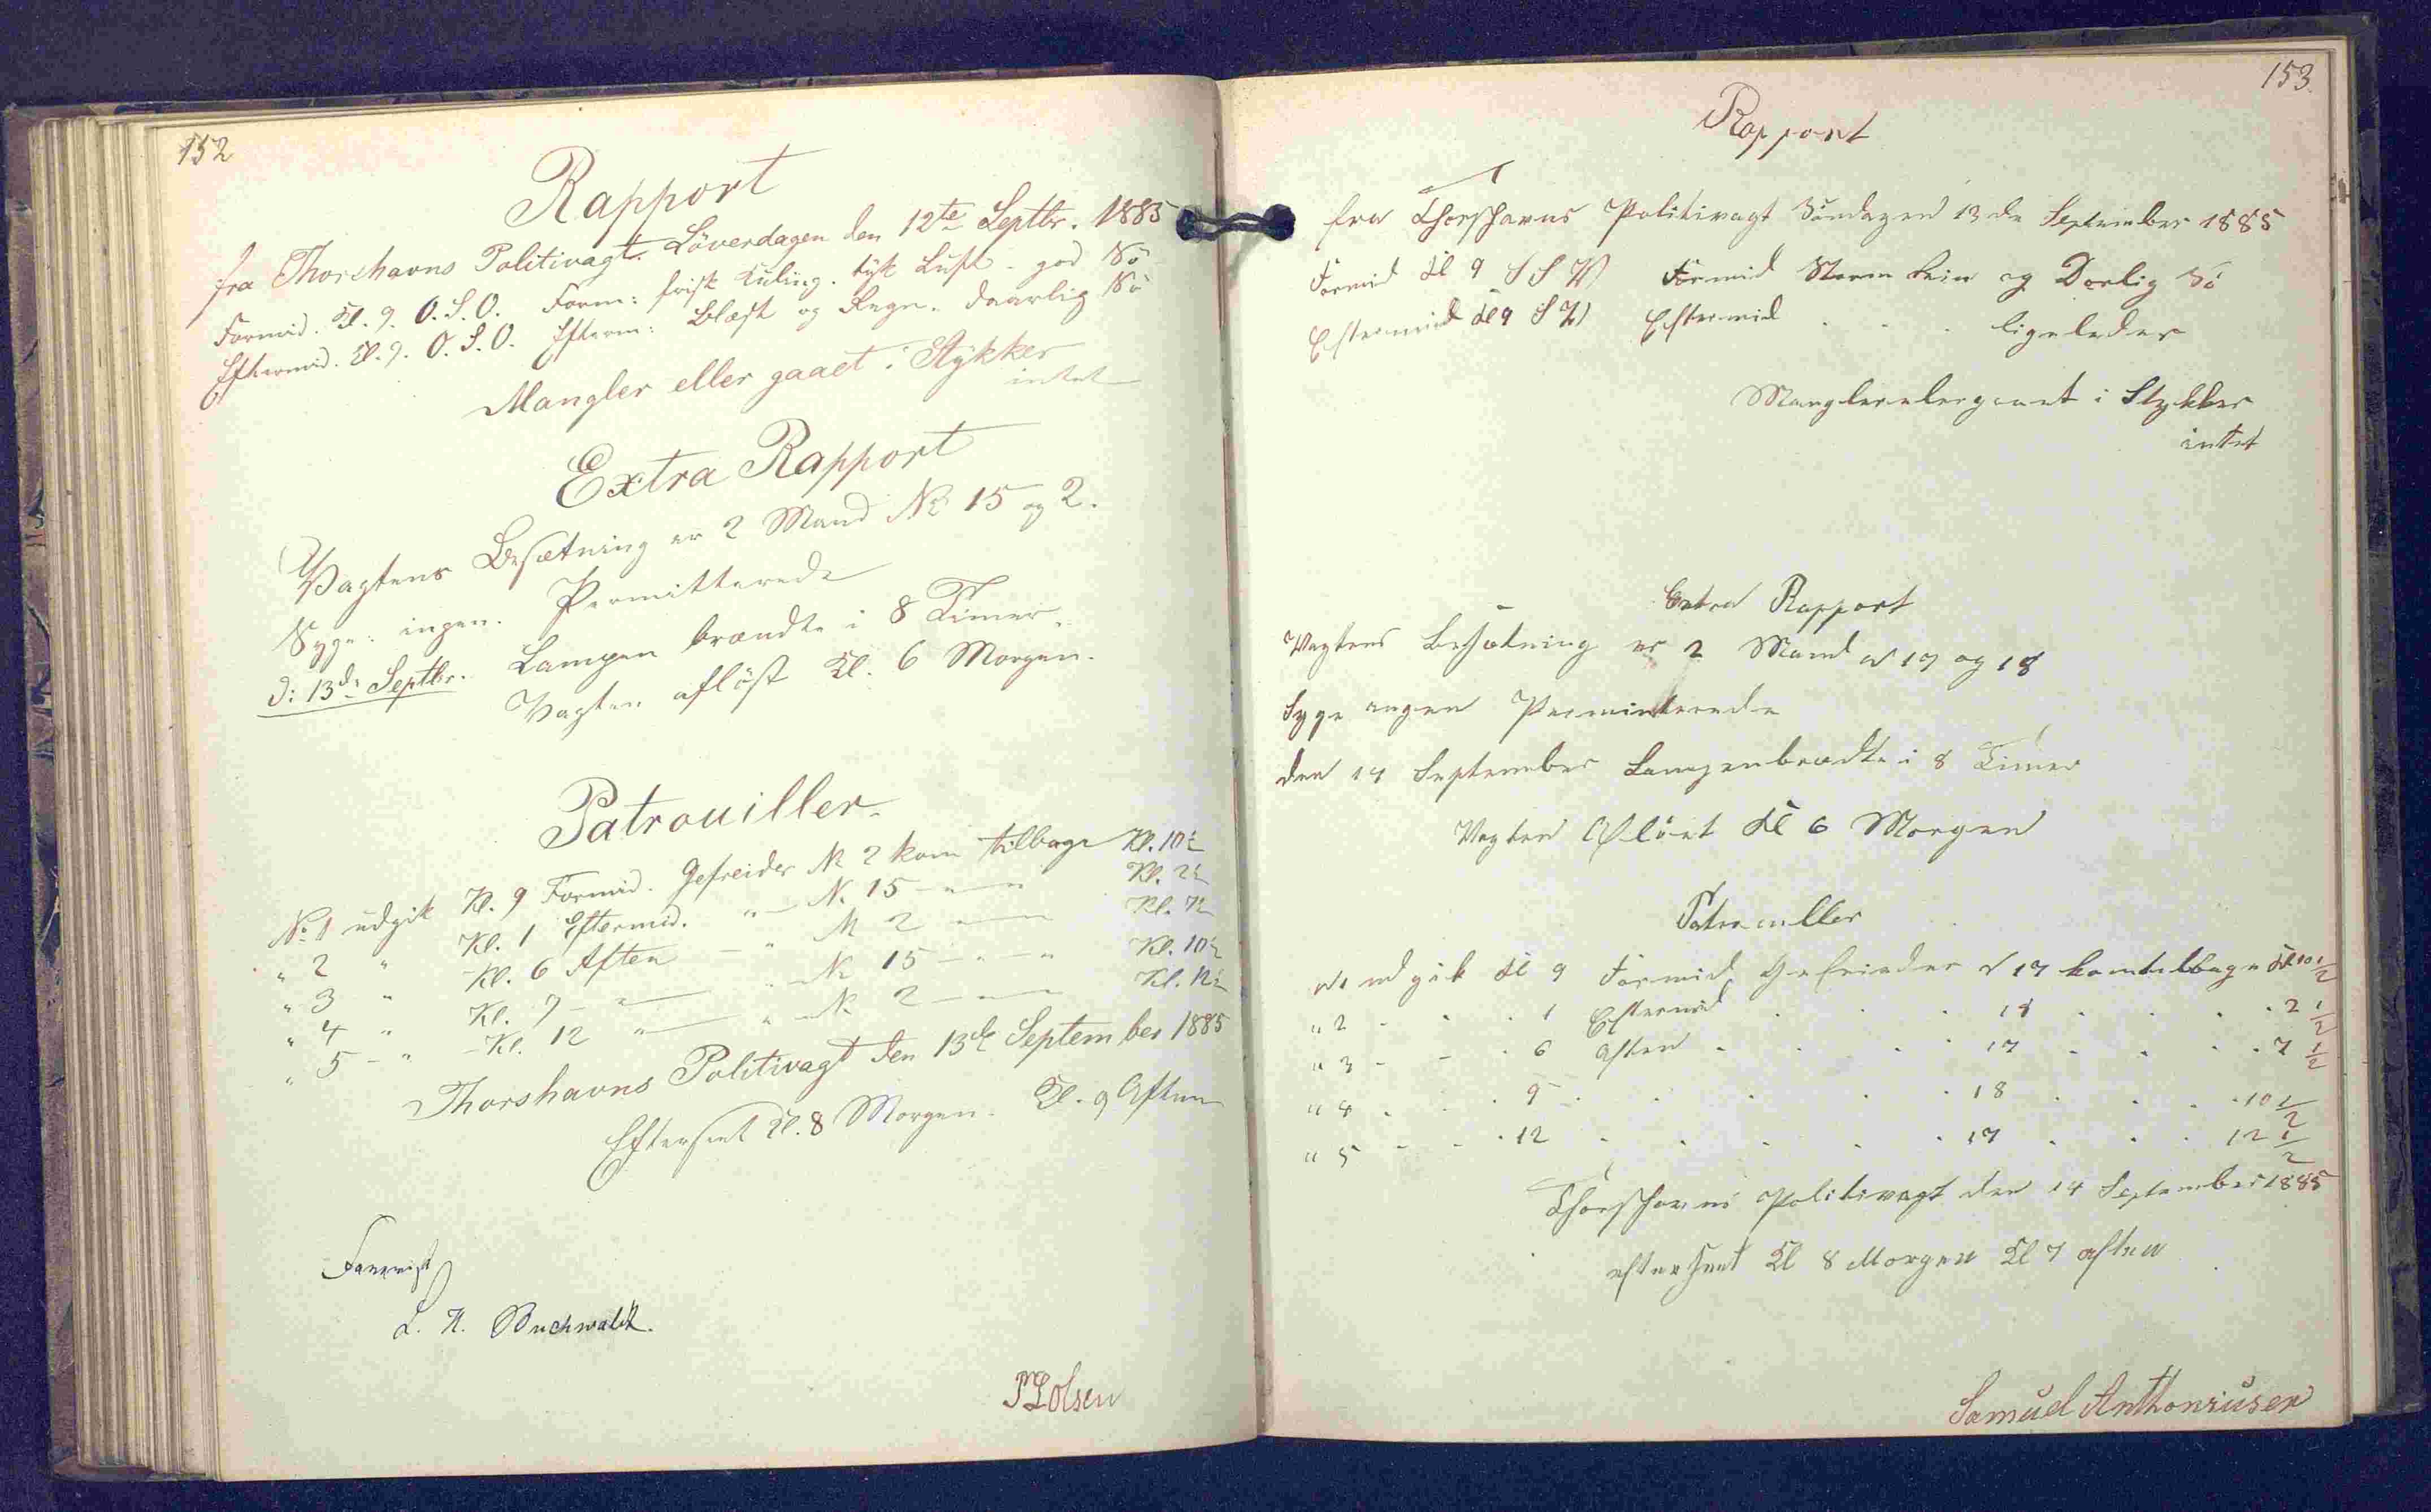 152
Rapport
fra Thorshavns Politivagt. Löverdagen den 12te Septbr. 1885
Formid. Kl. 9. O.S.O. Form: frisk Kuling. tyk Luft. god Sö
Eftermid. Kl. 9. O.S.O. Efterm: Blæst og Regn. daarlig Sö
Mangler eller gaaet i Stykker
intet
Extra Rapport
Vagtens Besætning er 2 Mand No 15 og 2.
Syge: ingen. Permitterede
D: 13de Septbr. Lampen brændte i 8 Timer.
Vagten aflöst Kl. 6 Morgen.
Patrouiller.
No 1 udgik Kl. 9 Formid. Gefreider No 2 kom tilbage Kl. 10½
" 2 " Kl. 1 Eftermid. " — No 15 — " — Kl. 2½
" 3 " Kl. 6 Aften — " No 2 " — Kl. 7½
" 4 " Kl. 9 — " — " No 15 — " — " Kl. 10½
" 5 — " — Kl. 12 " — " — No 2 — " — Kl. 12½
Thorshavns Politivagt den 13de September 1885
Efterseet Kl. 8 Morgen. Kl. 9 Aften
L. H. Buchwaldt.
P L Olsen
153.
Rapport
fra Thorshavns Politivagt Söndagen 13de September 1885
Formid Kl 9 S S V Formid Storm Rein og Dorlig Sö
Eftermid Kl 9 S V Eftermid . . . ligeledes
Mangler eler gaaet i Stykker
intet
Extra Rapport
Vagtens Besætning er 2 Mand N 17 og 18
Syge ingen Perminterede
den 14 September Lampen brædte i 8 Timer
Vagten Aflöst Kl 6 Morgen
Patruller
N 1 ud gik Kl 9 Formid Gefreider N 17 kom tilbage Kl 10 1/2
" 2 - . . 1 Eftermid . . . 18 . . . . 2 1/2
" 3 - - . 6 Aften . . . 17 . . . . 7 1/2
" 4 . . . 9 - . . . . 18 . . . 10 1/2
" 5 - - - . 12 . . . . . 17 . . . 12 1/2
Thorshavns Politivagt den 14 September 1885
efterseet Kl 8 Morgen Kl 7 aften
Samuel Anthoniusen